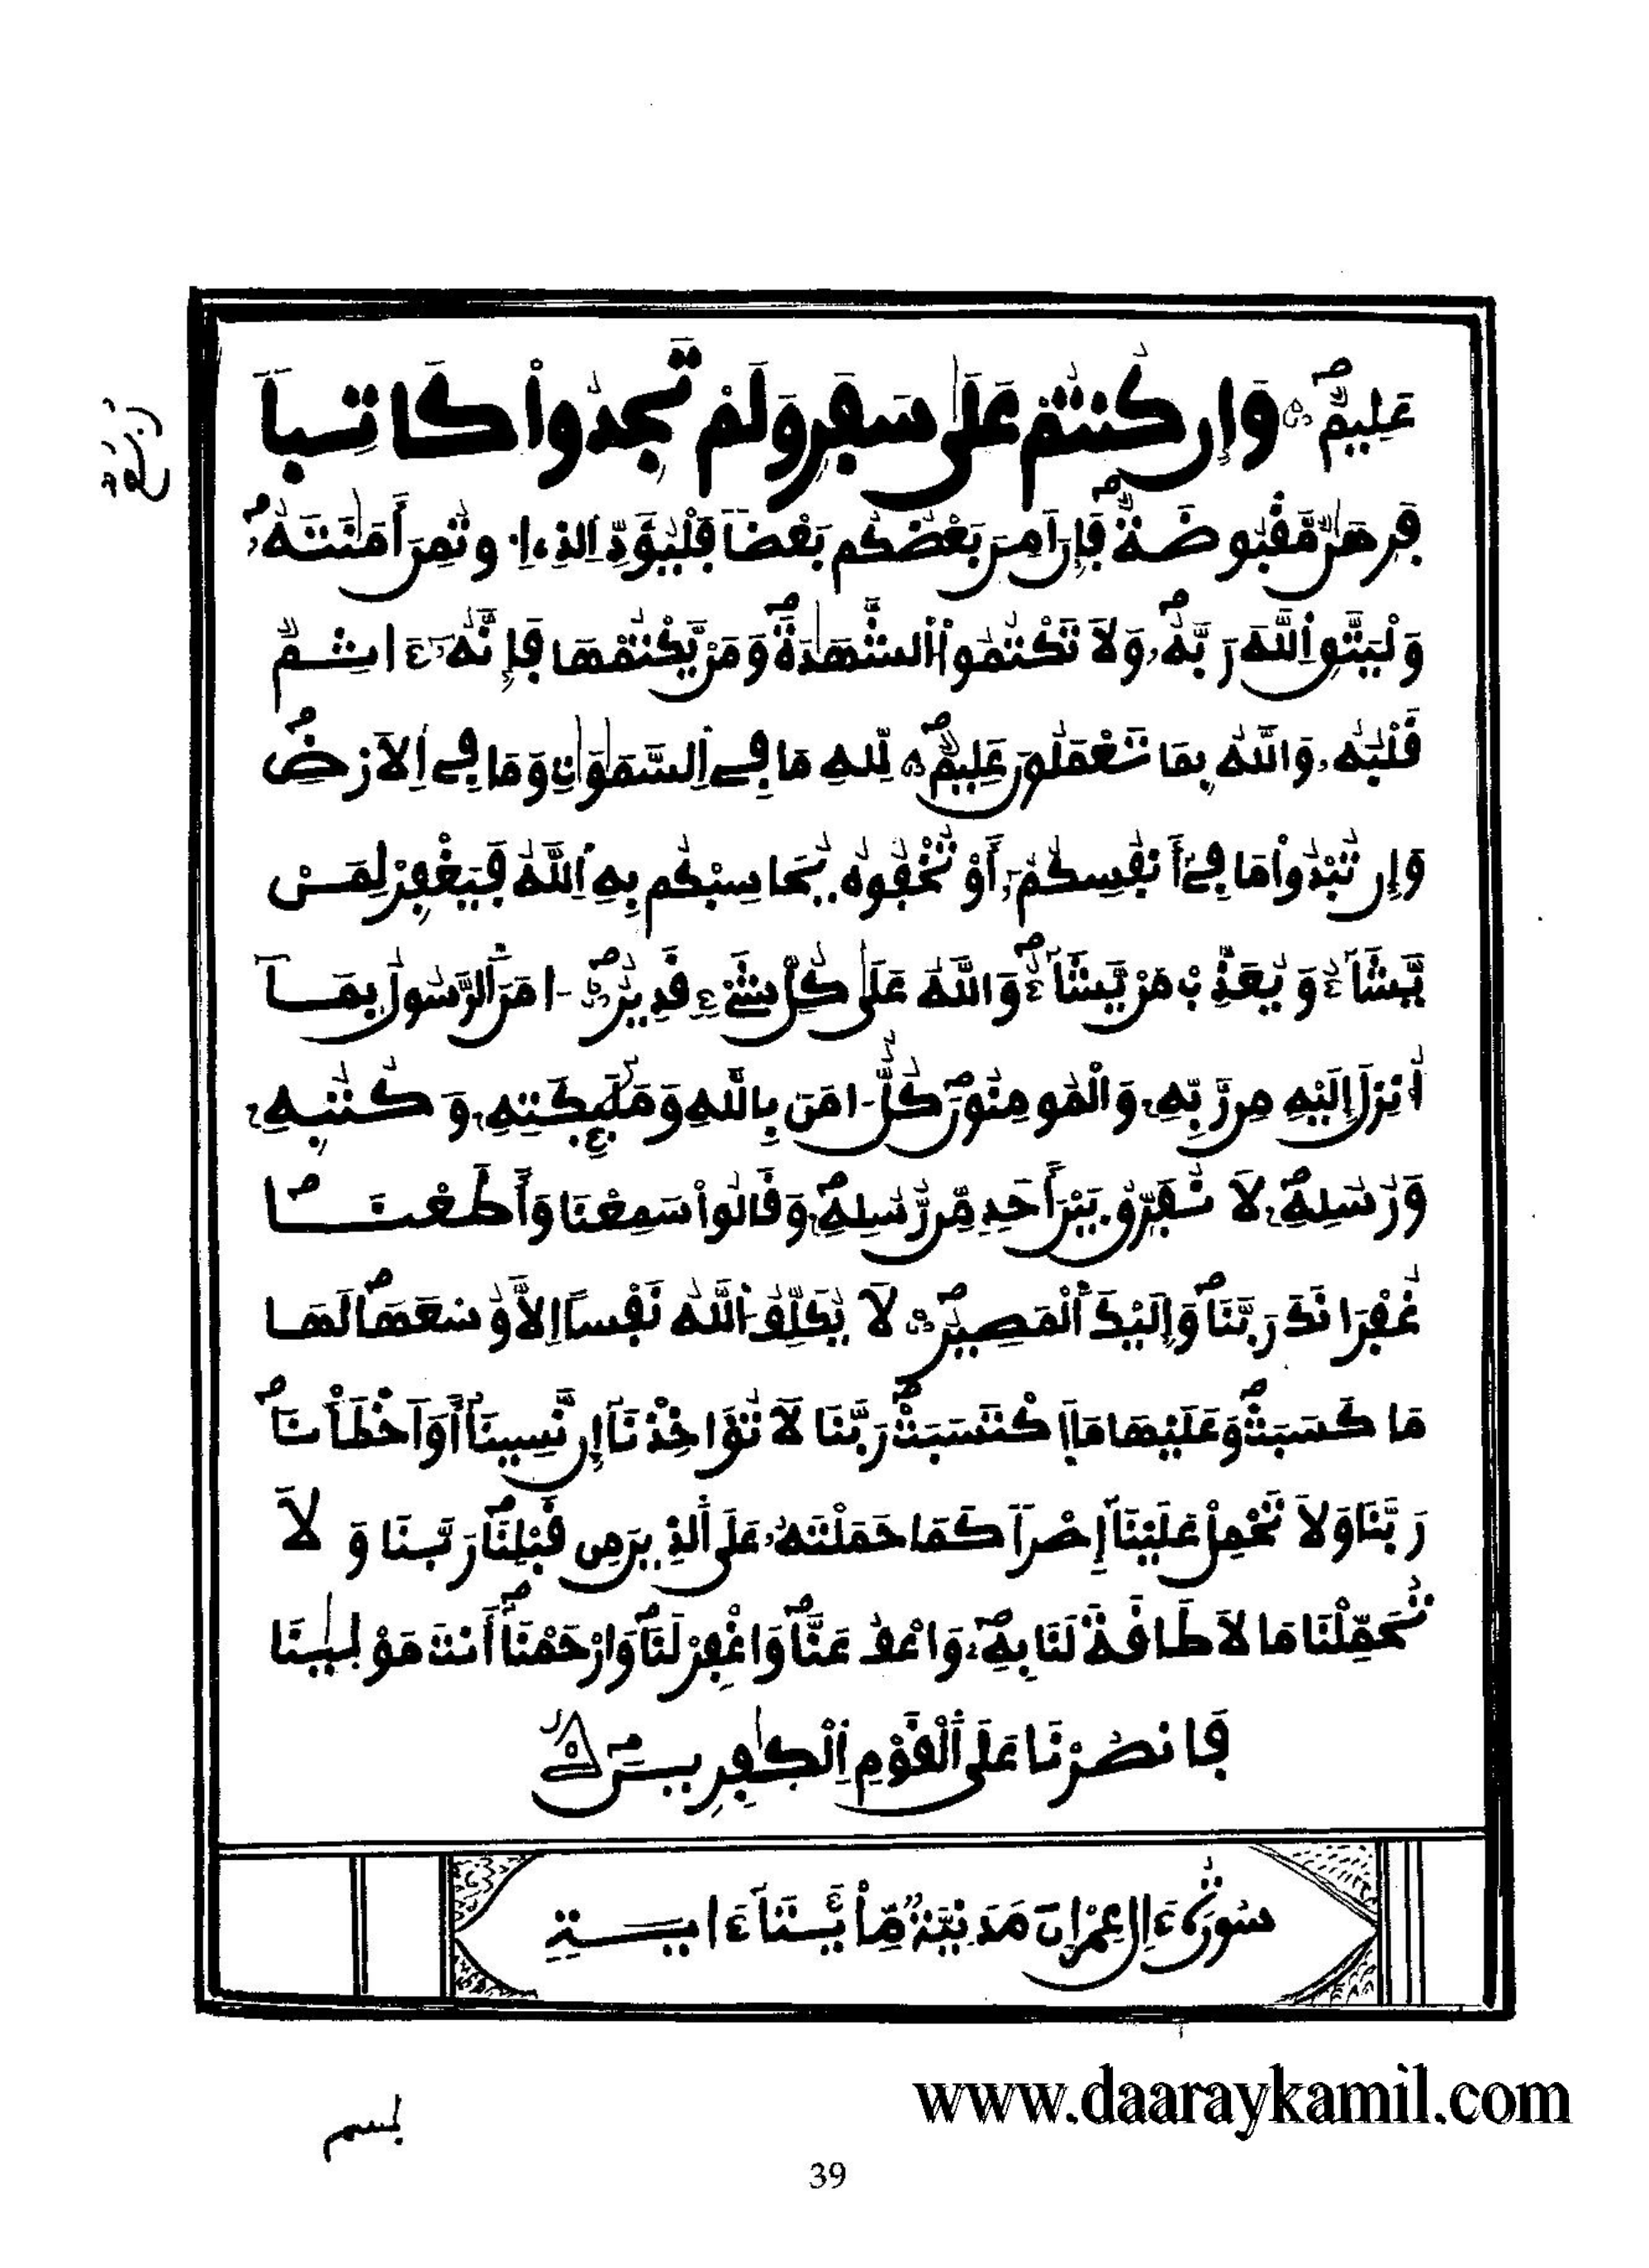 ربع
عَلِيمٌ وَإِن كُنتُمْ عَلَىٰ سَفَرٍ وَلَمْ تَجِدُواْ كَاتِباً
فَرِهَٰنٌ مَّقْبُوضَةٌ فَإِنَ اَمِنَ بَعْضُكُم بَعْضاً فَلْيُؤَدِّ اِلذِے اِ۟وتُمِنَ أَمَٰنَتَهُۥ
وَلْيَتَّقِ اِللَّهَ رَبَّهُۥ وَلَا تَكْتُمُواْ اُلشَّهَٰدَةَ وَمَنْ يَّكْتُمْهَا فَإِنَّهُۥٓ ءَاثِمٌ
قَلْبُهُۥ وَاللَّهُ بِمَا تَعْمَلُونَ عَلِيمٌ لِّلهِ مَا فِے اِلسَّمَٰوَٰتِ وَمَا فِے اِلَارْضِ
وَإِن تُبْدُواْ مَا فِےٓ أَنفُسِكُمُۥٓ أَوْ تُخْفُوهُ يُحَاسِبْكُم بِهِ اِللَّهُ فَيَغْفِرْ لِمَنْ
يَّشَآءُ وَيُعَذِّبْ مَنْ يَّشَآءُ وَاللَّهُ عَلَىٰ كُلِّ شَےْءٍ قَدِيرٌ ءَامَنَ اَلرَّسُولُ بِمَآ
أُنزِلَ إِلَيْهِ مِن رَّبِّهِۦ وَالْمُومِنُونَ كُلٌّ ءَامَنَ بِاللَّهِ وَمَلَٰٓئِكَتِهِۦ وَكُتُبِهِۦ
وَرُسُلِهِۦ لَا نُفَرِّقُ بَيْنَ أَحَدٍ مِّن رُّسُلِهِۦ وَقَالُواْ سَمِعْنَا وَأَطَعْنَا
غُفْرَانَكَ رَبَّنَا وَإِلَيْكَ اَلْمَصِيرُ لَا يُكَلِّفُ اُللَّهُ نَفْساً اِلَّا وُسْعَهَا لَهَا
مَا كَسَبَتْ وَعَلَيْهَا مَا اَ۪كْتَسَبَتْ رَبَّنَا لَا تُؤَاخِذْنَآ إِن نَّسِينَآ أَوَ اَخْطَأْنَا
رَبَّنَا وَلَا تَحْمِلْ عَلَيْنَآ إِصْراً كَمَا حَمَلْتَهُۥ عَلَى اَلذِينَ مِن قَبْلِنَا رَبَّنَا وَلَا
تُحَمِّلْنَا مَا لَا طَاقَةَ لَنَا بِهِۦ وَاعْفُ عَنَّا وَاغْفِرْ لَنَا وَارْحَمْنَآ أَنتَ مَوْلَىٰنَا
فَانصُرْنَا عَلَى اَلْقَوْمِ اِلْكَٰفِرِينَ
سُورَةُ ءَالِ عِمْرَانَ مَدَنِيَّةٌ مِّائَتَا ءَايَةٍ
www.daaraykamil.com
بسم
39